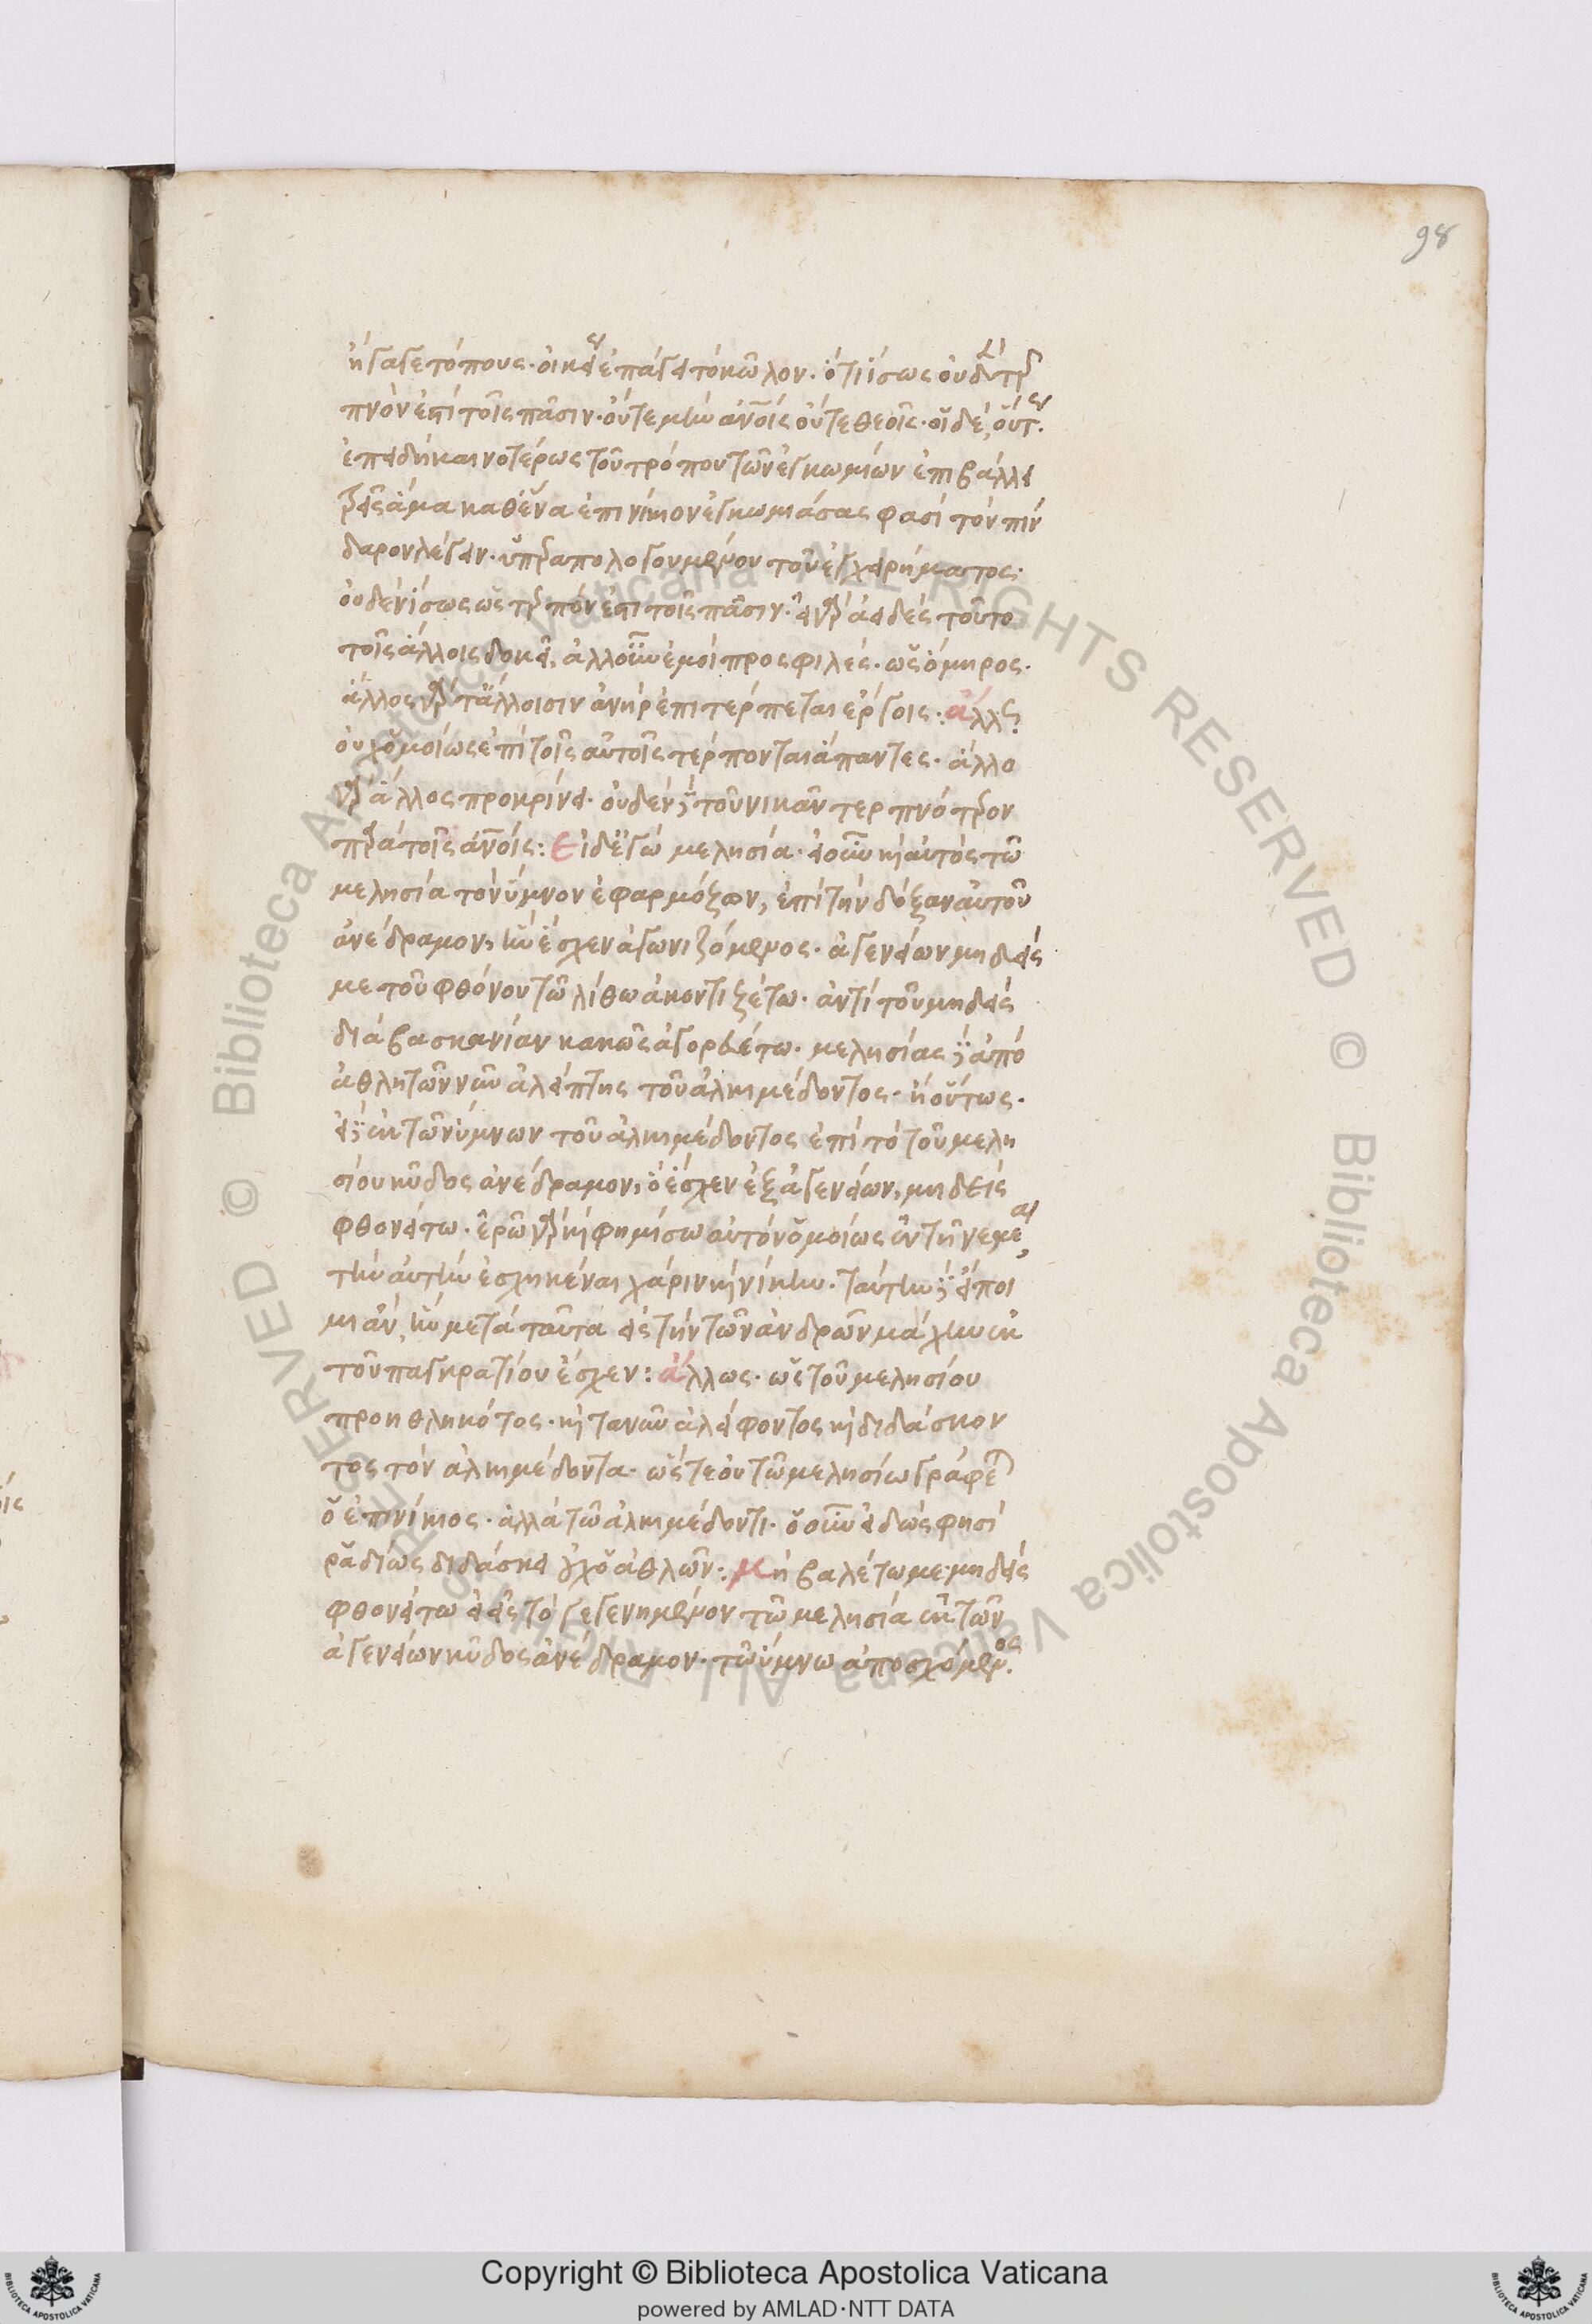 98
ἤγαγε τόπους· οἰκεῖ ἐπάγει τὸ κῶλον· ὅτι ἴσως οὐδὲν τερ
πνὸν ἐπὶ τοῖς πᾶσιν· οὔτε μὴν ἀνοις οὔτε θεοῖς·
ἐπειδὴ καινοτέρως τοῦ τρόπου τῶν ἐγκωμίων ἐπιβάλλει
τρεῖς ἅμα καθ' ἕνα ἐπίνικον ἐγκωμιάσας φασὶ τὸν πίν
δαρον λέγειν· ὑπεραπολογουμενον τοῦ ἐγχειρήματος·
οὐδὲν ἴσως ὡς τερπνὸν ἐπὶ τοῖς πᾶσιν· εἰ γὰρ ἀειδὲς τοῦτο
τοῖς ἄλλοις δοκεῖ, ἀλλ' οὖν ἐμοὶ προσφιλές· ὡς ὅμηρος·
ἄλλος γάρ τ' ἄλλοισιν ἀνὴρ ἐπιτέρπεται ἔργοις: ἄλλως
οὐχ' ὁμοίως ἐπὶ τοῖς αὐτοῖς τέρπονται ἅπαντες· ἄλλο
γὰρ ἄλλος προκρίνει· οὐδὲν δὲ τοῦ νικᾶν τερπνότερον
παρὰ τοῖς ἀνοις: Εἰ δ' ἐγὼ μελησία· εἰ οὖν καὶ αὐτὸς τῶ
μελησία τὸν ὕμνον ἐφαρμόζων, ἐπὶ τὴν δόξαν αὐτοῦ
ἀνέδραμον, ἣν ἔσχεν ἀγωνιζόμενος· ἀγενείων μηδείς
με τοῦ φθόνου τῶ λίθω ἀκοντιζέτω· ἀντὶ τοῦ μηδεὶς
διὰ βασκανίαν κακῶς ἀγορευέτω· μελησίας δὲ ἀπὸ
ἀθλητῶν νῦν ἀλείπτης τοῦ ἀλκιμέδοντος· ἢ οὕτως·
εἰ δὲ ἐκ τῶν ὕμνων τοῦ ἀλκιμέδοντος ἐπὶ τὸ τοῦ μελη
σίου κῦδος ἀνέδραμον, ὃ ἔσχεν ἐξ ἀγενείων, μηδεὶς
φθονείτω· ἐρῶ γὰρ καὶ φημίσω αὐτὸν ὁμοίως ἐν τῆ νεμέα
τὴν αὐτὴν ἐσχηκέναι χάριν καὶ νίκην· ταύτην δ' εἴποι
μι ἄν, ἣν μετὰ ταῦτα εἰς τὴν τῶν ἀνδρῶν μάχην ἐκ
τοῦ παγκρατίου ἔσχεν: ἄλλως· ὡς τοῦ μελησίου
προηθληκότος· καὶ τανῦν ἀλείφοντος καὶ διδάσκον
τος τὸν ἀλκιμέδοντα· ὥστε οὐ τῶ μελησίω γράφεται
ὁ ἐπίνικος· ἀλλὰ τῶ ἀλκιμέδοντι· ὁ οὖν εἰδώς φησι
ῥαδίως διδάσκει ἀθλῶν: μὴ βαλέτω με· μηδεὶς
φθονείτω εἰ εἰς τὸ γεγενημένον τῶ μελησία ἐκ τῶν
ἀγενείων κῦδος ἀνέδραμον· τῶ ὕμνω ἀποσχόμενος
Copyright © Biblioteca Apostolica Vaticana
powered by AMLAD·NTT DATA